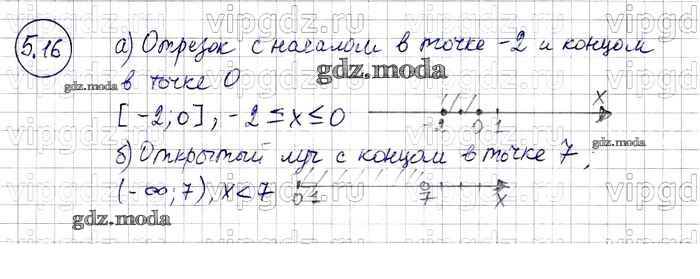 5.16
а) Отрезок с началом в точке -2 и концом
в точке 0
gdz.moda
[-2; 0], -2 ≤ x ≤ 0
-2 0 1 x
б) Открытый луч с концом в точке 7,
(-∞; 7), x < 7
0 1 7 x
gdz.moda
gdz.moda
gdz.moda
vipgdz.ru